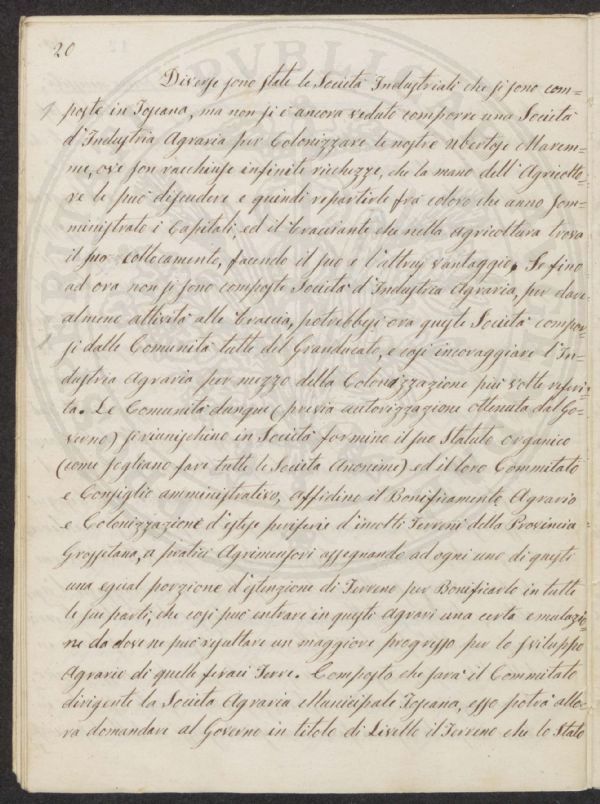 20
Diverse sono state le Società Industriali che si sono com=
poste in Toscana, ma non si è ancora veduto comporre una Società
d'Industria Agraria per Colonizzare le nostre Ubertose Marem=
me, ove son racchiuse infinite richezze, che la mano dell'Agricolto=
re le può difendere e quindi repartirle frà coloro che anno som=
ministrato i Capitali, ed il bracciante che nella agricoltura trova
il suo Collocamento, facendo il suo e l'altrui vantaggio. Se fino
ad ora non si sono composte Società d'Industria Agraria, per dare
almeno attività alle braccia, potrebbesi ora queste Società compor=
si dalle Comunità tutte del Granducato, e così incoraggiare l'In=
dustria Agraria per mezzo della Colonizzazione più volte referi=
ta. Le Comunità dunque (previa autorizzazione ottenuta dal Go=
verno) si riunischino in Società formino il suo Statuto organico
(come sogliano fare tutte le Società Anonime) ed il loro Commitato
e Consiglio amministrativo, affidino il Bonificamento Agrario
e Colonizzazione d'estese periferie d'incolti Terreni della Provincia
Grossetana, a pratici Agrimensori assegnando ad ogni uno di questi
una egual porzione d'estenzione di Terreno per Bonificarlo in tutte
le sue parti, che così può entrare in questi Agrari una certa emulazio=
ne da dove ne può resultare un maggiore progresso per lo sviluppo
Agrario di quelle feraci Terre. Composto che sarà il Commitato
dirigente la Società Agraria Municipale Toscana, esso potrà allo=
ra domandare al Governo in titolo di Livello il Terreno che lo Stato